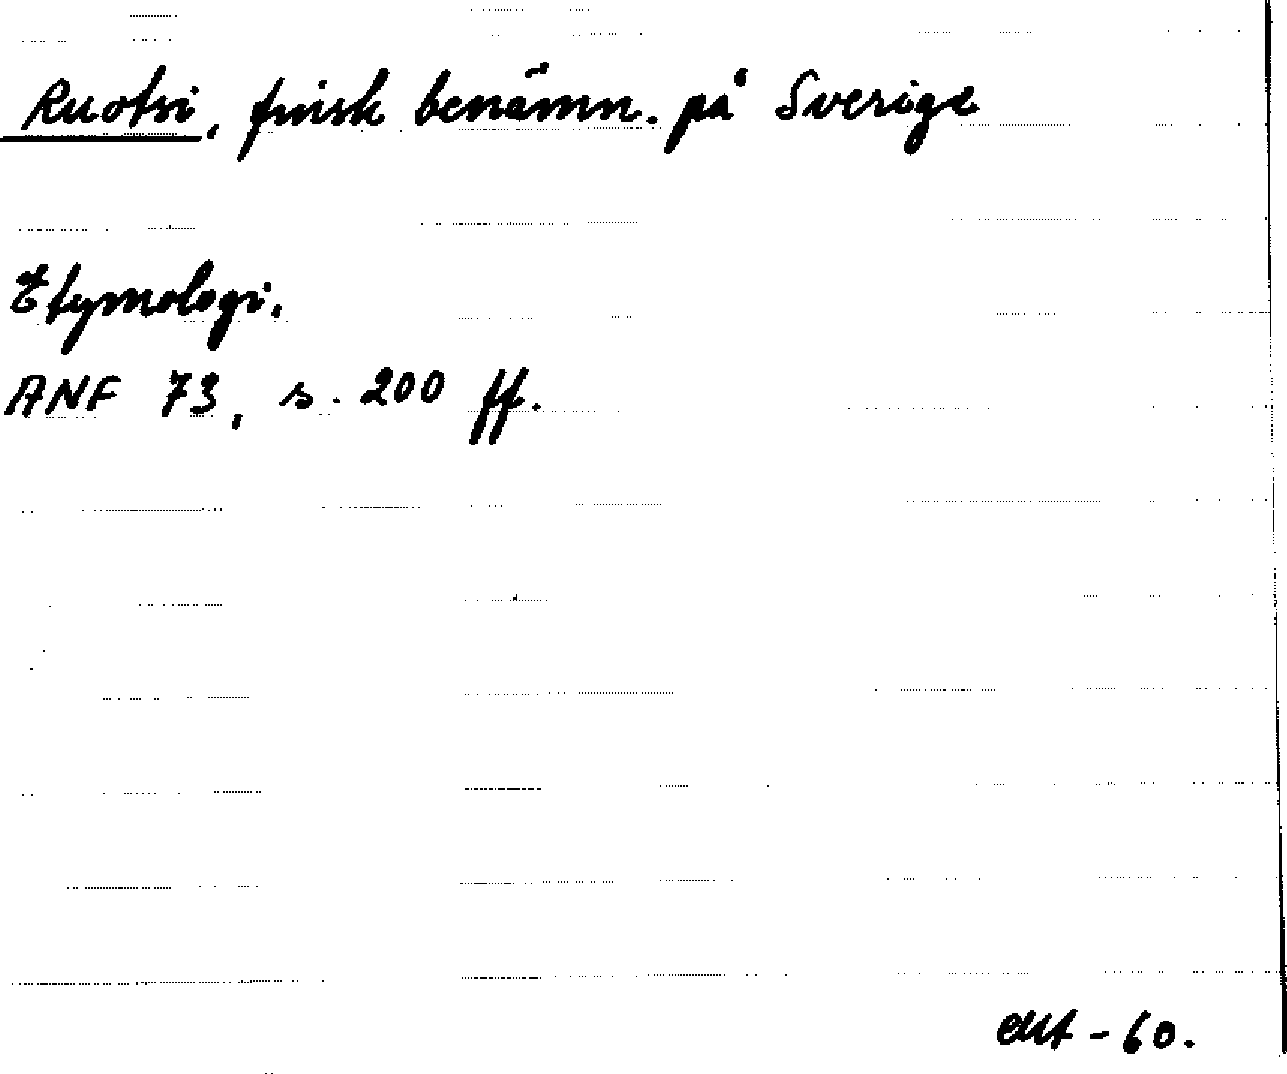 Ruotsi, finsk benämn. på Sverige
Etymologi.
ANF 73, s. 200 ff.
-60.